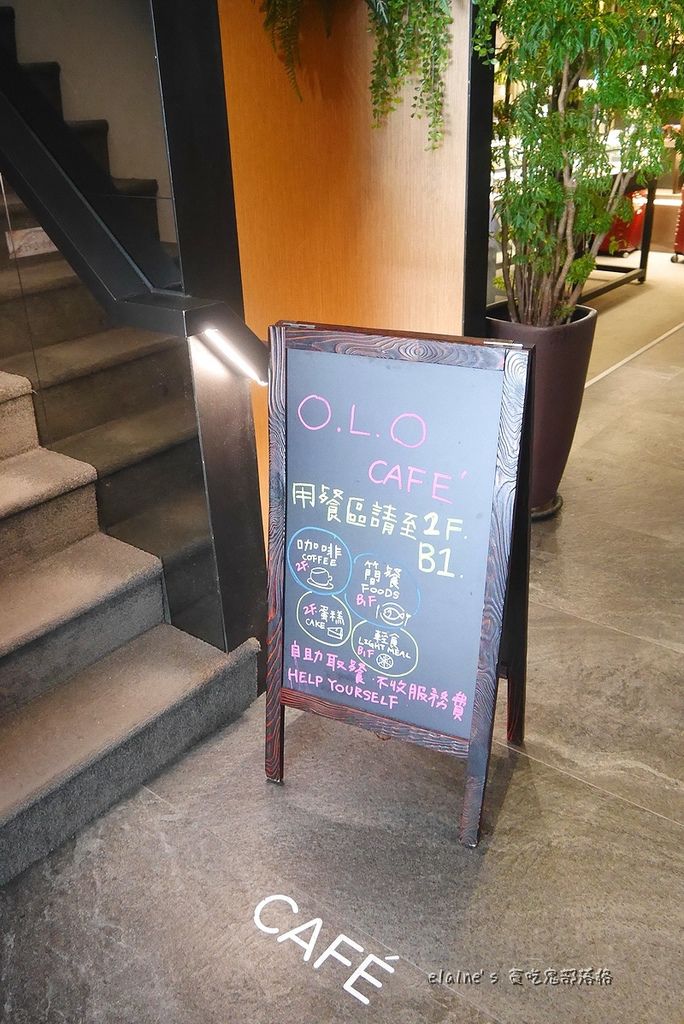 O.L.O
CAFE'
用餐區請至2F.
B1.
咖啡
COFFEE
2F.
簡餐
FOODS
B1F
2F.蛋糕
CAKE
輕食
LIGHT MEAL
B1F
自助取餐.不收服務費
HELP YOURSELF
CAFÉ
elaine's 貪吃鬼部落格